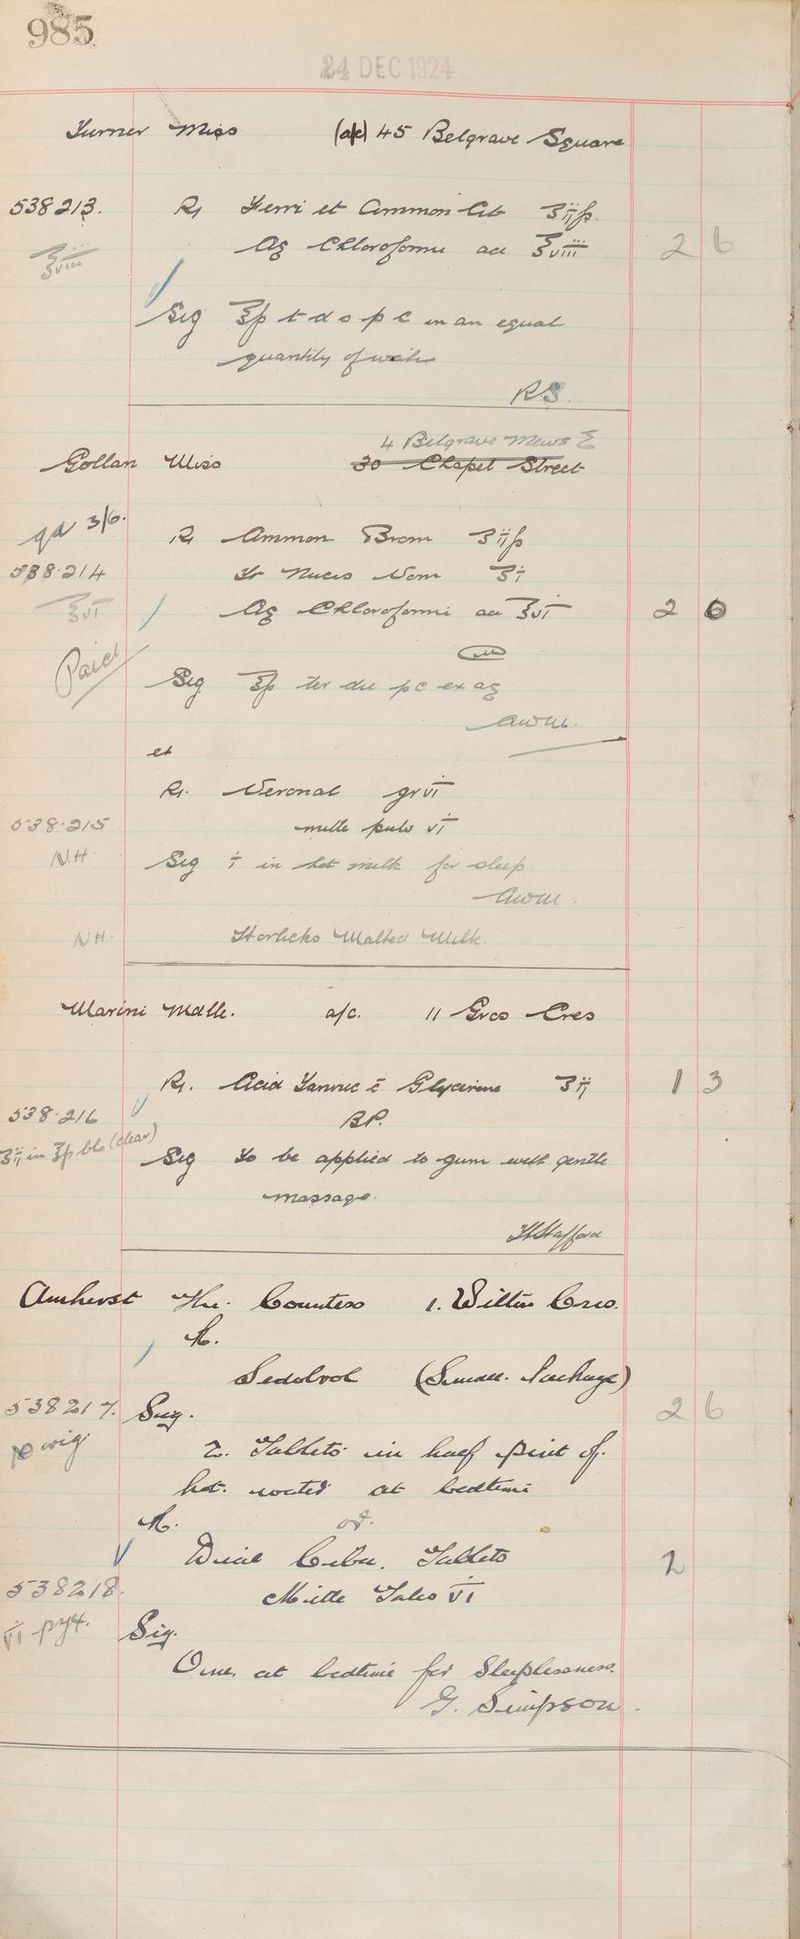 985
24 DEC 1924
Turner Miss (a/c) 45 Belgrave Square
538213. R Ferri et Ammon Cit ʒiiſs.
℥viii Aq Chloroformi ad ℥viii 2 6
Sig ℥ſs t d s p c in an equal
quantity of water
RS.
4 Belgrave Mews E
Gollan Miss 30 Chapel Street
ga 3/6. R Ammon Brom ʒiiſs
538.214 Tr Nucis Vom ʒi
℥vi Aq Chloroformi ad ℥vi 2 6
Paid
Sig ℥ſs ter die pc ex aq
AWM.
et
R. Veronal gr vi
538.215 mitte pulv vi
N.H. Sig i in hot milk for sleep
AWM.
NH. Horlicks Malted Milk.
Marini Mdlle. a/c. 11 Gros Cres
R. Acid Tannic c̄ Glycerine ʒii 1 3
538.216 BP.
ʒii in ℥ſs blo (clear) Sig To be applied to gum with gentle
massage.
HStafford
Amherst The Countess 1. Wilton Cres.
R.
Sedobrol (Small. Package)
538217. Sig. 2 6
p orig. 2. Tablets in half pint of.
hot. water at bedtime
R. od.
Dial Ciba. Tablets 2
538218. Mitte Tales VI
VI Sig.
One. at bedtime for Sleeplessness.
G. Simpson.